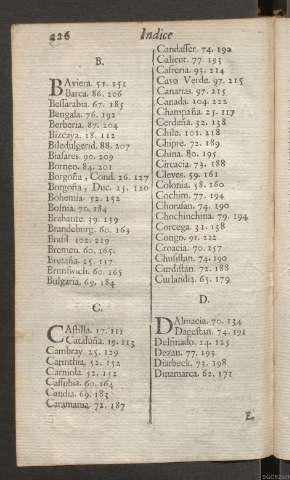 426
Indice
B.
BAviera. 51. 151
Barca. 86. 206
Bessarabia. 67. 185
Bengala. 76. 192
Berberia. 87. 204
Bizcaya. 18. 112
Biledulgerid. 88. 207
Biafares. 90. 209
Borneo. 84. 201
Borgoña, Cond. 26. 127
Borgoña, Duc. 25. 120
Bohemia. 52. 152
Bosnia. 70. 184
Brabante. 39. 159
Brandeburg. 60. 163
Brasil. 102. 229
Bremen. 60. 165.
Bretaña. 25. 117
Brunswich. 60. 165
Bulgaria. 69. 184
C.
CAstilla. 17. 111
Cataluña. 19. 113
Cambray. 25. 129
Carinthia. 52. 152
Carniola. 52. 152
Cassubia. 60. 164
Candia. 69. 183
Caramania. 72. 187
Candasser. 74. 190
Calicut. 77. 193
Cafreria. 93. 214
Cavo Verde. 97. 215
Canarias. 97. 215
Canada. 104. 222
Champaña. 25. 117
Cerdeña. 32. 138
Chile. 101. 218
Chipre. 72. 189
China. 80. 195
Circacia. 73. 188
Cleves. 59. 161
Colonia. 58. 160
Cochim. 77. 194
Chorasan. 74. 190
Chochinchina. 79. 194
Corcega. 31. 138
Congo. 91. 212
Croacia. 70. 157
Chusistan. 74. 190
Curdistan. 72. 188
Curlandia. 65. 179
D.
DAlmacia. 70. 134
Dagestan. 74. 191
Delfinado. 24. 125
Dezan. 77. 193
Diarbeck. 73. 198
Dinamarca. 62. 171
E.